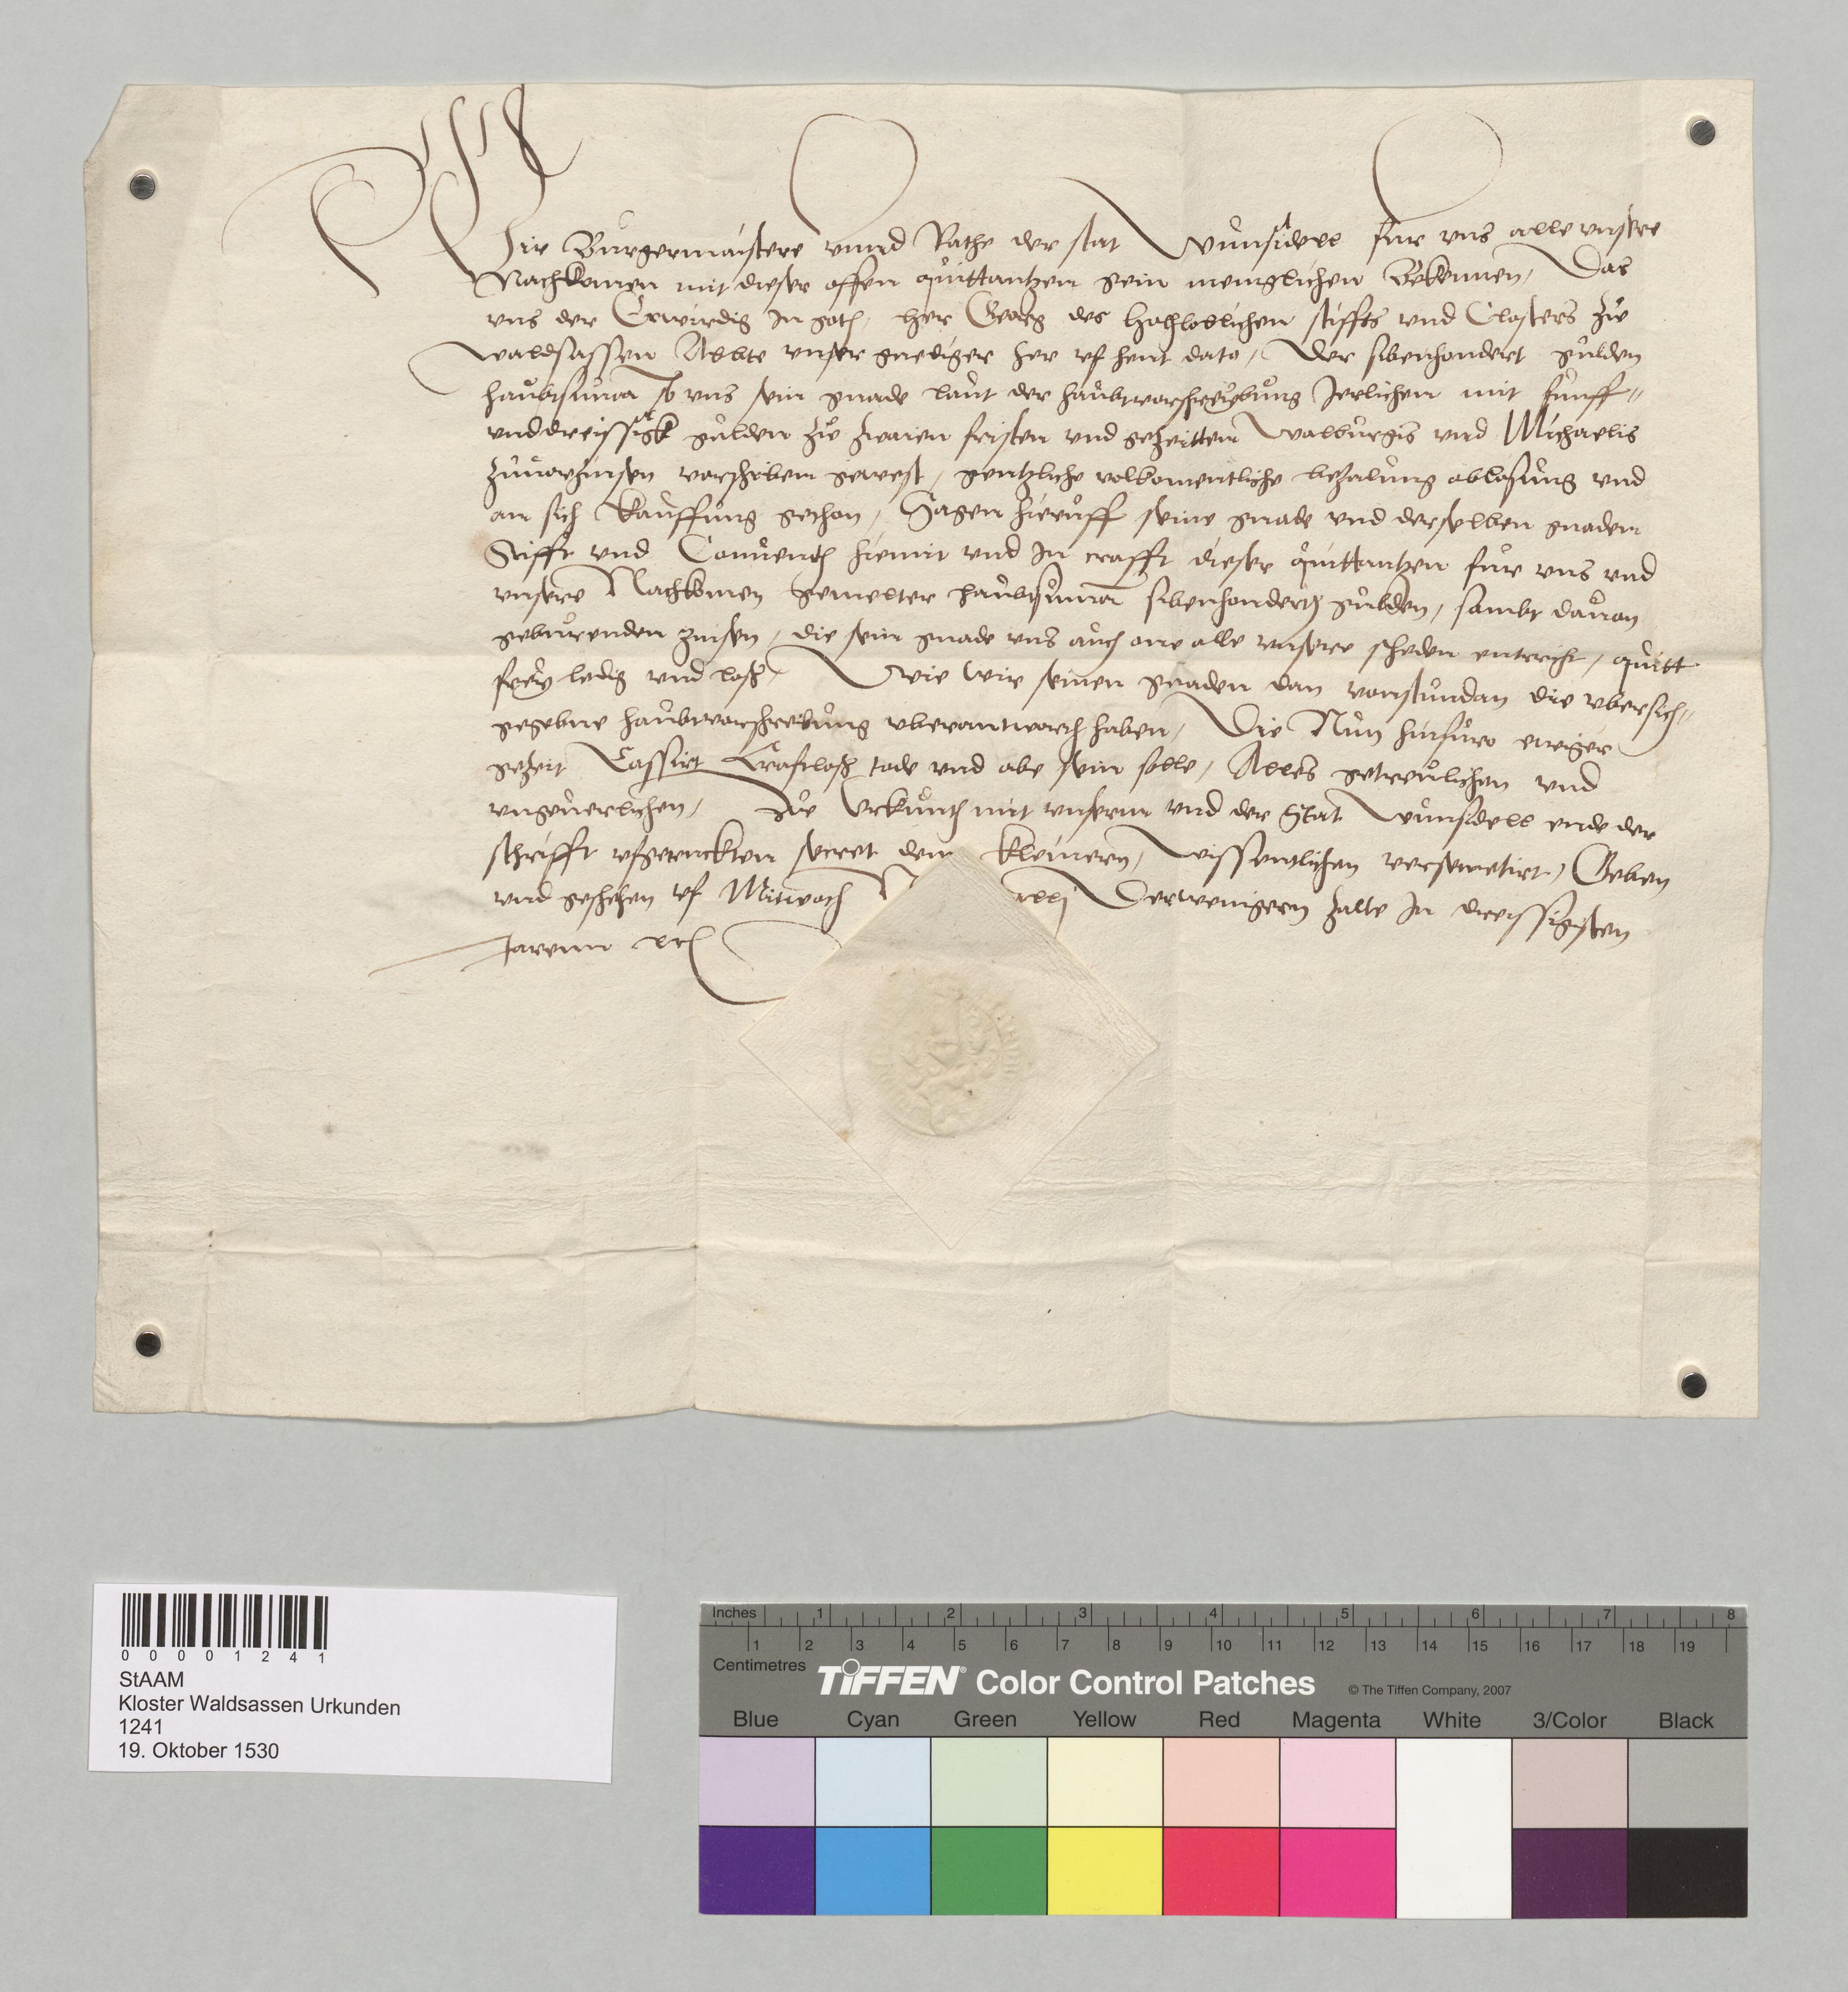 Wir Burgermaistere vnnd Rathe der stat Wunsidell fur vns alle vnsere
Nachkomen mit dieser offen quittantzen gein meniglichen Bekennen, Das
vns der Erwirdig In goth, her Georg des Hochloblichen stiffts vnd Closters zu
Waldsassen Abbte vnser gnediger her vf heut dato, Der sibenhondert gulden
haubtsuma so vns sein gnade laut der haubtvorschreybung Jerlichen mit funff-
vnddreissigk gulden zu zwaien fristen vnd gezeitten Walburgis vnd Michaelis
zuuorzinsen vorschriben gewest, gentzliche volkomentliche bezalung ablosung vnd
an sich kauffung gethon, Sagen hieruff seine gnade vnd derselben gnaden
Stifft vnd Conuenth hiemit vnd In crafft dieser quittantzen fur vns vnd
vnsere Nachkomen gemelter haubtsuma sibenhonderth gulden, sambt dauon
geburenden zinsen, die sein gnade vns auch one alle vnsere scheden entricht, quitt
frey ledig vnd loß, Wie wir seinen gnaden dan vonstundan die vbersich-
gegebne haubtvorschreibung vberantworth haben, Die Nun hinfuro ewiger
gezeit Cassirt Craftloß tode vnd abe sein solle, Alles getreulichen vnd
vngeuerlichen, Zu Urkunth mit vnserm vnd der Stat Wunsidell ende der
schrifft vfgetruckten secret dem kleinern, wissentlichen versecretirt, Geben
vnd geschehen vf Mitwoch Derwenigern zalle In dreissigsten
Jarenn etc
0 0 0 0 1 2 4 1
StAAM
Kloster Waldsassen Urkunden
1241
19. Oktober 1530
Inches 1 2 3 4 5 6 7 8
1 2 3 4 5 6 7 8 9 10 11 12 13 14 15 16 17 18 19
Centimetres TIFFEN® Color Control Patches © The Tiffen Company, 2007
Blue Cyan Green Yellow Red Magenta White 3/Color Black